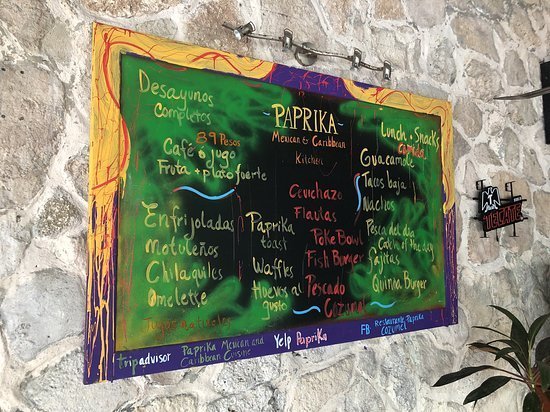 Desayunos
Completos
89 Pesos
Café ó jugo
Fruta + plato fuerte
Enfrijoladas
Motuleños
Chilaquiles
Omeletse
Jugos Naturales
PAPRIKA
Mexican & Caribbean
Kitchen
Paprika
toast
Waffles
Huevos al
gusto
Cevichazo
Flautas
Poke Bowl
Fish Burger
Pescado
Cozumel
Lunch + Snacks
Comida
Guacamole
Tacos baja
Nachos
Pesca del dia
Catch of the day
Fajitas
Quinoa Burger
tripadvisor
Paprika Mexican and
Caribbean Cuisine
Yelp Paprika
FB
Restaurante Paprika
Cozumel
TECATE